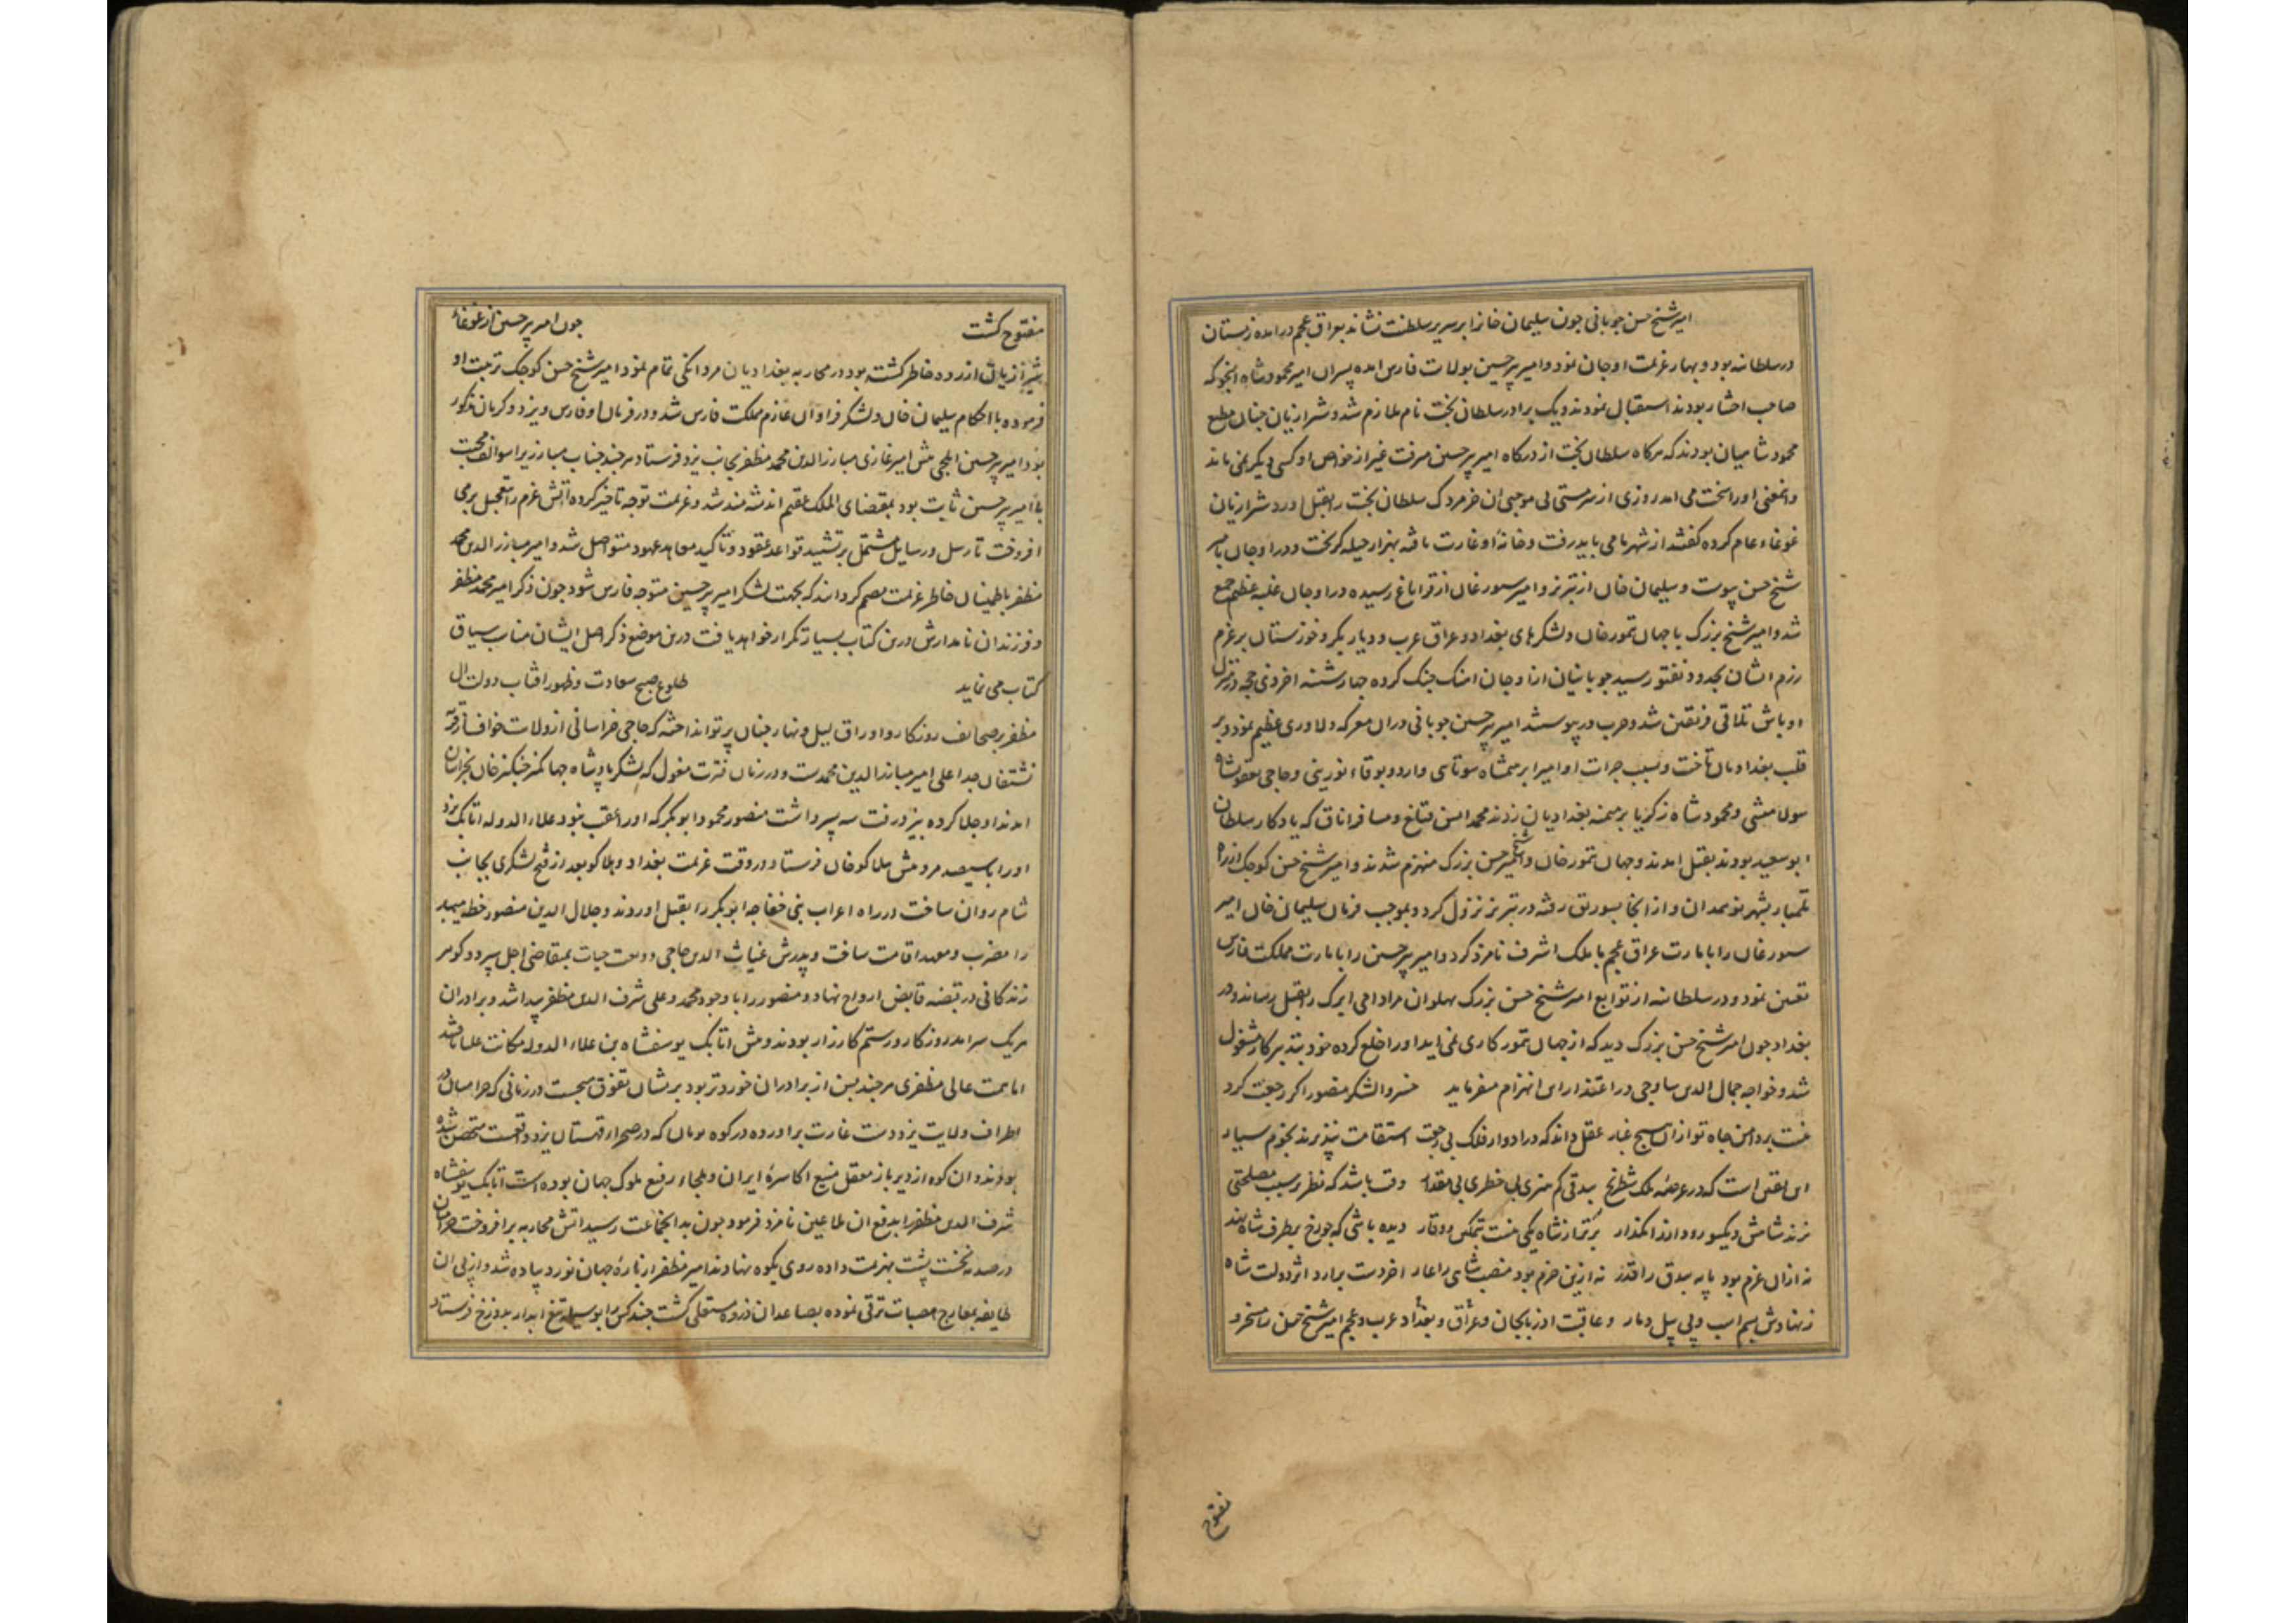 امیر شیخ حسن جوبانی جون سلیمان خانرا بر سریر سلطنت نشاند بعراق عجم درامده زمستان
در سلطانیه بود و بهار عزیمت اوجان نمود و امیر پیر حسین بولایت فارس امده پسران امیر محمود شاه اینجو که
صاحب اختیار بودند استقبال نمودند و یک برادر سلطان بخت نام ملازم شد و شیرازیان جنان مطیع
محمود شاهیان بودند که هرکاه سلطان بخت از درکاه امیر پیر حسین میرفت غیر از خواص او کسی دیکر نمی ماند
و این معنی اورا سخت می امد روزی از سرمستی بی موجبی ان خرمردک سلطان بخت را بقتل اورد شیرازیان
غوغاء عام کرده کفتند از شهر ما می باید رفت و خانهٔ او غارت یافته بهزار حیله کریخت و در اوجان بامیر
شیخ حسن پیوست و سلیمان خان از تبریز و امیر سیورغان از قراباغ رسیده در اوجان غلبه عظیم جمع
شد و امیر شیخ بزرک با جهان تمور خان و لشکرهای بغداد و عراق عرب و دیار بکر و خوزستان بر عزم
رزم ایشان بحدود نغتور رسید جوبانیان از اوجان اهنک جنک کرده جهارشنبه اخر ذی حجه در منزل
اوباش تلاقی فریقین شد و حرب در پیوستند امیر پیر حسین جوبانی در ان معرکه دلاوری عظیم نمود و بر
قلب بغدادیان تاخت و بسبب جرات او امیر ابرهیمشاه سوتاسی
و محمود شاه زکریا بر میمنه بغدادیان زدند محمد امین قتلغ و مسافر اناق که یادکار سلطان
ابو سعید بودند بقتل امدند و جهان تمور خان و امیر شیخ حسن بزرک منهزم شدند و امیر شیخ حسن کوجک از راه
بشهر نو همدان و از انجا بسورتق رفته در تبریز نزول کرد و بموجب فرمان سلیمان خان امیر
سیورغان را بایالت عراق عجم با ملک اشرف نامزد کرد و امیر پیر حسین را بایالت مملکت فارس
تعیین نمود و در سلطانیه از توابع امیر شیخ حسن بزرک بهلوان مراد امی ایرک را بقتل رساند و در
بغداد جون امیر شیخ حسن بزرک دید که از جهان تمور کاری نمی اید اورا خلع کرده خود بتدبیر کار مشغول
شد و خواجه جمال الدین ساوجی در اعتذار این انهزام میفرماید خسروا لشکر منصور اکر رجعت کرد
نیست بر دامن جاه تو ازان هیچ غبار عقل داند که در ادوار فلک بی رجعت استقامت نپذیرند نجوم سیار
این یقین است که در عرصهٔ ملک شطرنج بیدقی کم هنری بی خطری بی مقدار وقت باشد که نظر بر سبب مصلحتی
نزند شاهش و یکسو رود از راهکذار برتر از شاه یکی نیست بتمکین و وقار دیده باشی که جو رخ بر طرف شاه نهد
نه ازان عزم بود پایه بیدق را قدر نه ازین حزم بود منصب شاهی را عار اخر دست برارد اثر دولت شاه
ز نهادش بسم اسب و پی پیل دمار و عاقبت اذربایجان و عراق و بغداد عرب و عجم امیر شیخ حسن را مسخر و
مفتوح
مفتوح کشت جون امیر پیر حسین از غوغاء
شیرازیان ازرده خاطر کشته بود در محاربه بغدادیان مردانکی تمام نمود امیر شیخ حسن کوجک تربیت او
فرموده با احکام سلیمان خان و لشکر فراوان عازم مملکت فارس شد و در فرمان او فارس و یزد و کرمان مذکور
بود امیر پیر حسین ایلجی پیش امیر غازی مبارز الدین محمد مظفر بجانب یزد فرستاد هرجند جناب مبارزی را سوالف محبت
با امیر پیر حسین ثابت بود بمقتضای الملک عقیم اندیشه مند شد و عزیمت توجه تاخیر کرده اتش عزم را تعجیل بر می
افروخت تا رسل و رسایل مشتمل بر تشیید قواعد عقود و تاکید معاهد عهود متواصل شد و امیر مبارز الدین محمد
مظفر باطمینان خاطر عزیمت مصمم کردانید که بجهت لشکر امیر پیر حسین متوجه فارس شود جون ذکر امیر محمد مظفر
و فرزندان نامدارش درین کتاب بسیار تکرار خواهد یافت درین موضع ذکر اصل ایشان مناسب سیاق
کتاب می نماید طلوع صبح سعادت و ظهور افتاب دولت ال
مظفر بر صحایف روزکار و اوراق لیل و نهار جنان پرتو انداخته که حاجی خراسانی از ولایت خواف از قریه
نشتغان جد اعلی امیر مبارز الدین محمدست و در زمان فترت مغول که لشکر پادشاه جهانکیر جنکیز خان بخراسان
امدند او جلا کرده بیزد رفت سه پسر داشت منصور محمود ابو بکر که اورا عقب نبود علاء الدوله اتابک یزد
اورا با سیصد مرد پیش هلاکو خان فرستاد در وقت عزیمت بغداد و هلاکو بعد از فتح لشکری بجانب
شام روان ساخت در راه اعراب بنی خفاجه ابو بکر را بقتل اوردند و جلال الدین منصور خطه میبد
را مضرب و معهد اقامت ساخت و پدرش غیاث الدین حاجی ودیعت حیات بمتقاضی اجل سپرد و کوهر
زندکانی در قبضه قابض ارواح نهاد و منصور را با وجود محمد و علی شرف الدین مظفر پیدا شد و برادران
هریک سرامد روزکار و رستم کارزار بودند و پیش اتابک یوسفشاه بن علاء الدوله مکانت علیا یافتند
اما همت عالی مظفری هرجند بسن از برادران خوردتر بود بر ایشان تفوق میجست در زمانی که حرامیان در
اطراف ولایت یزد دست غارت براورده در کوه بونان که در صحراء قهستان یزد واقعست متحصن شده
بودند و ان کوه از دیر باز معقل منیع اکاسرهٔ ایران و ملجاء رفیع ملوک جهان بوده است اتابک یوسفشاه
شرف الدین مظفر را بدفع ان طاعین نامزد فرمود جون بدان جماعت رسید اتش محاربه برافروخت حرامیان
در صدمه نخست پشت بهزیمت داده روی بکوه نهادند امیر مظفر از بارهٔ جهان نورد پیاده شد و از پی ان
طایفه بمعارج هضبات ترقی نموده بصاعدان ذروه مستعلی کشت جند کس را بوسیله تیغ ابدار بدوزخ فرستاد